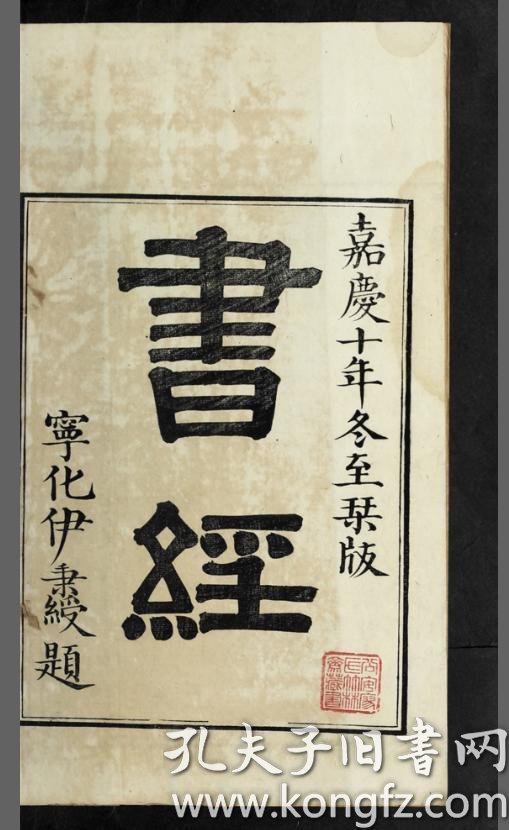 嘉慶十年冬至栞版
書經
寧化伊秉綬題
孔夫子旧书网
www.kongfz.com